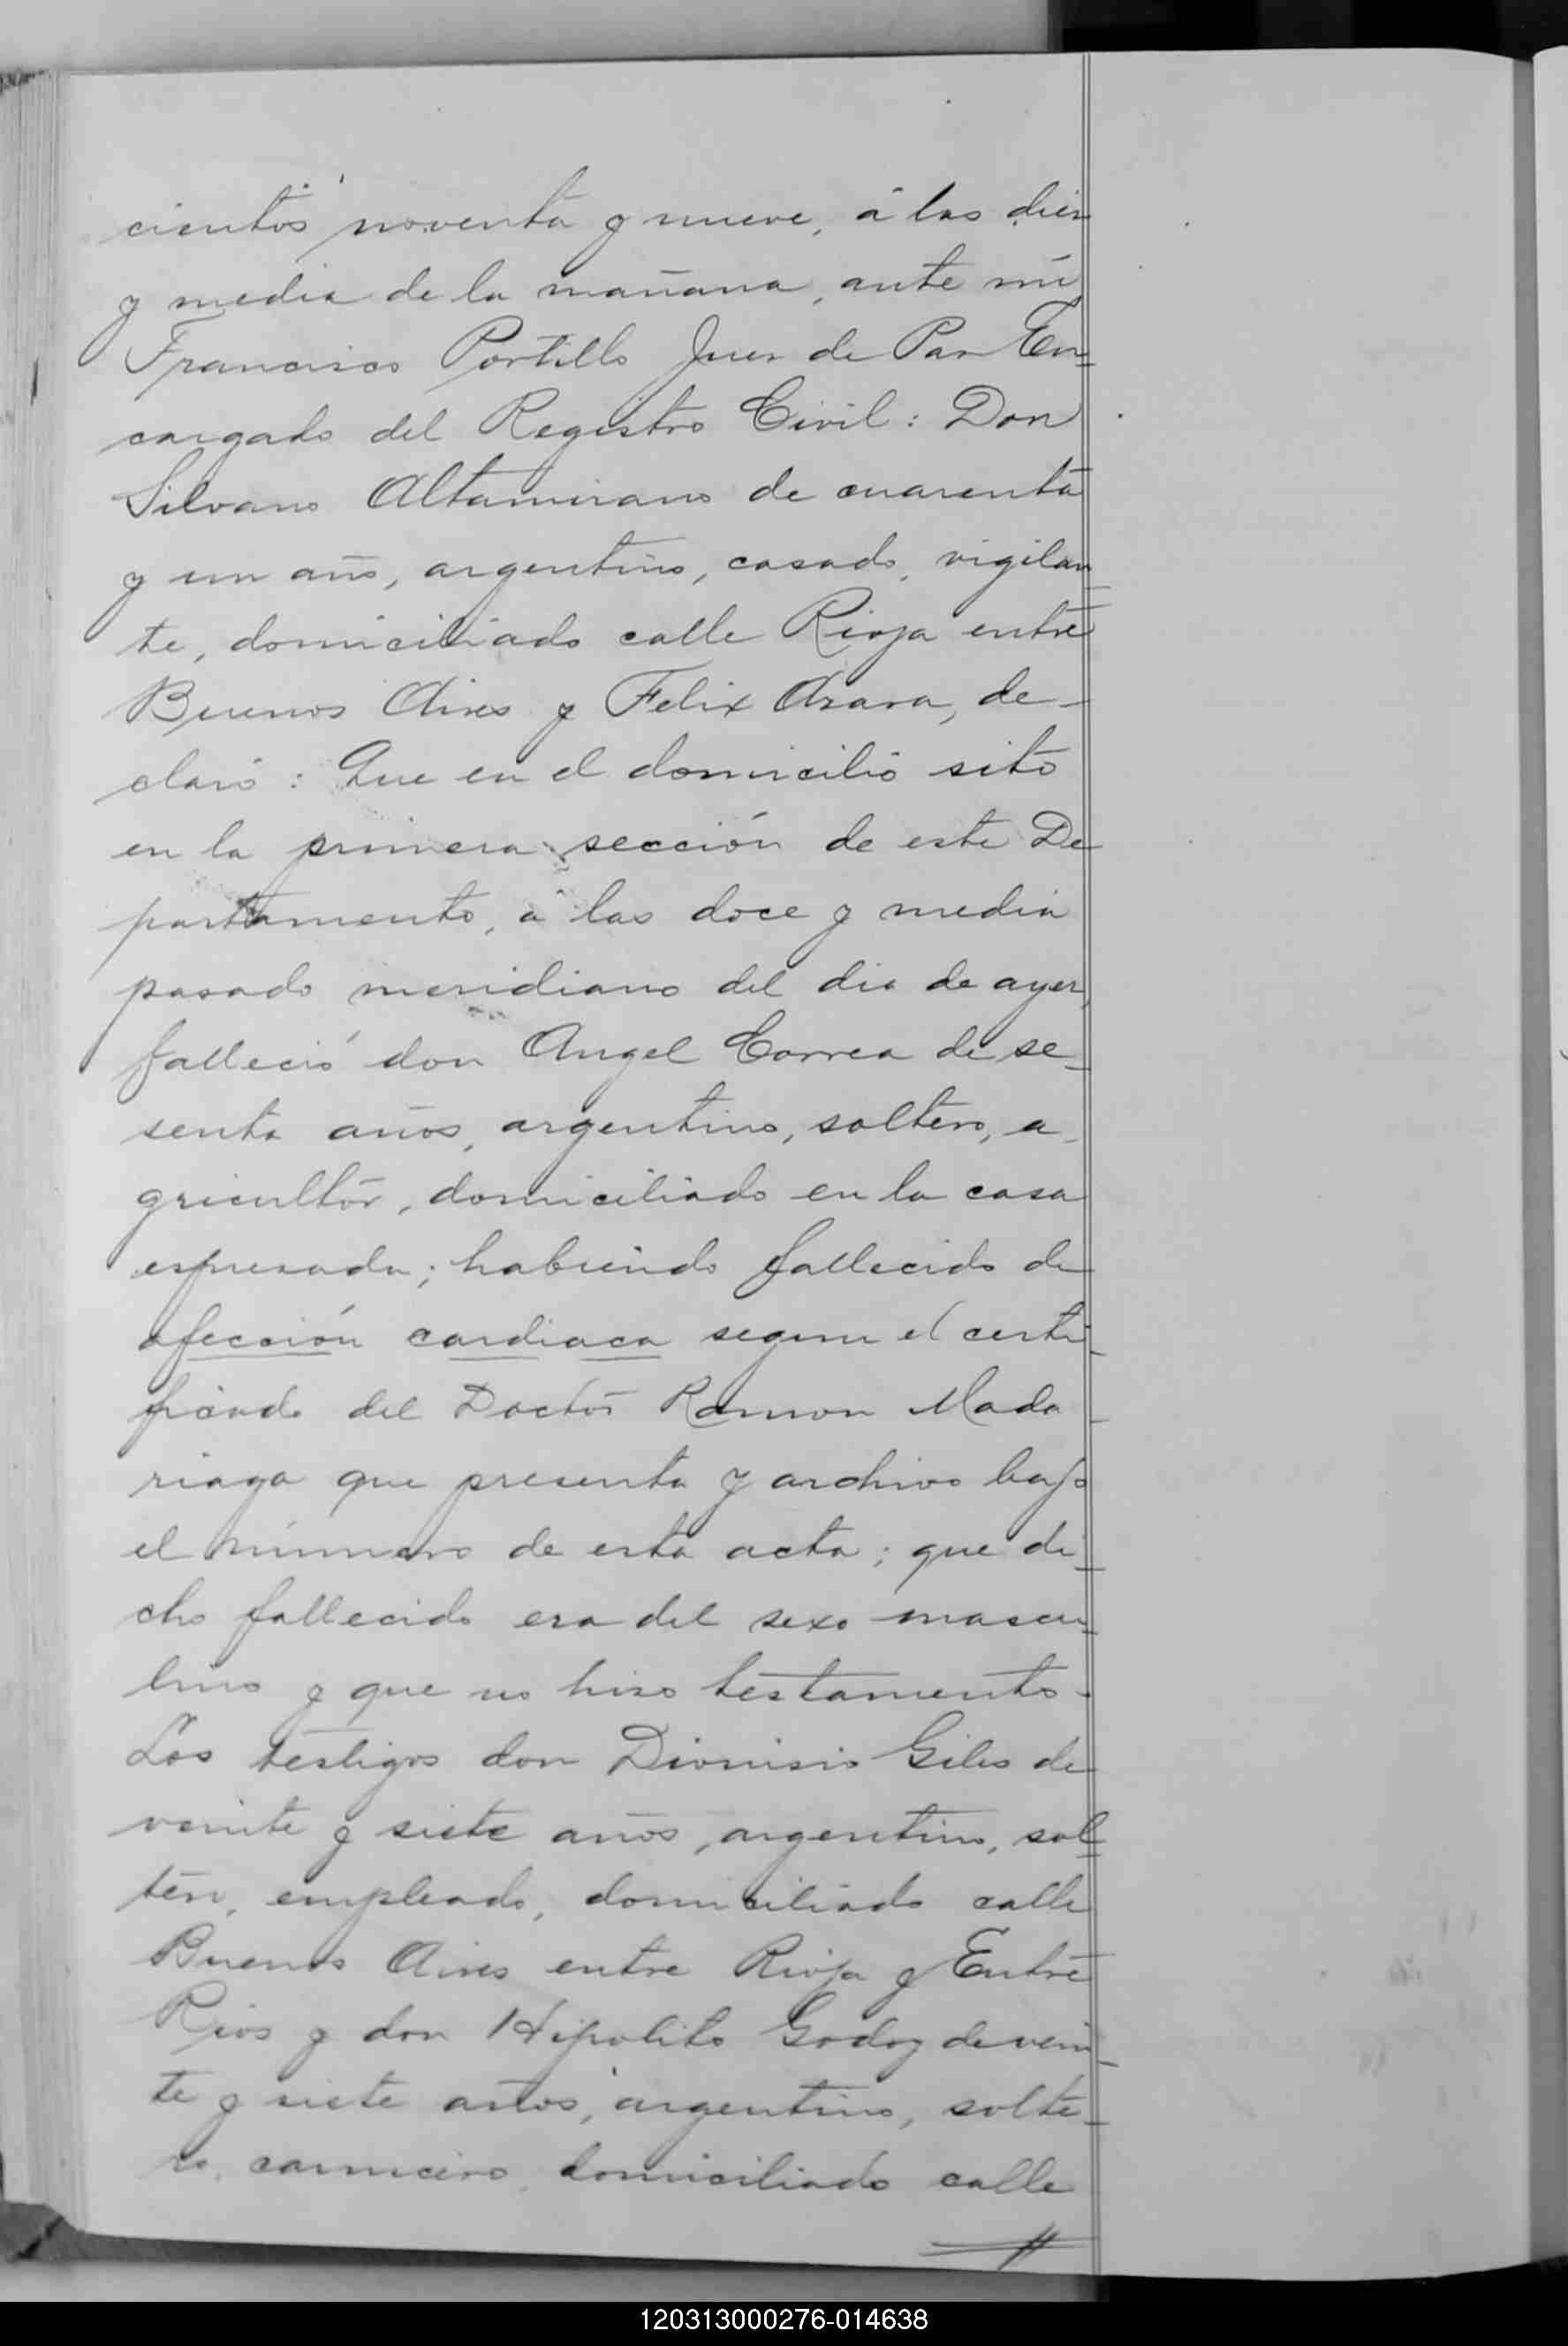 cientos noventa y nueve, á las diez
y media de la mañana, ante mi
Francisco Portillo Juez de Paz En-
cargado del Registro Civil: Don
Silvano Altamirano de cuarenta
y un año, argentino, casado, vigilan-
te, domiciliado calle Rioja entre
Buenos Aires y Felix Azara, de-
claró: Que en el domicilio sito
en la primera sección de este De
partamento, á las doce y media
pasado meridiano del dia de ayer,
falleció don Angel Correa de se-
senta años, argentino, soltero, a
gricultor, domiciliado en la casa
espresada; habiendo fallecido de
afección cardiaca segun el certi-
ficado del Doctor Ramon Mada-
riaga que presenta y archivo bajo
el número de esta acta; que di-
cho fallecido era del sexo mascu-
lino y que no hizo testamento.
Los testigos don Dionisio Giles de
veinte y siete años, argentino, sol-
tero, empleado, domiciliado calle
Buenos Aires entre Rioja y Entre
Rios y don Hipolito Godoy de vein-
te y siete años, argentino, solte-
ro, carnicero, domiciliado calle
120313000276-014638